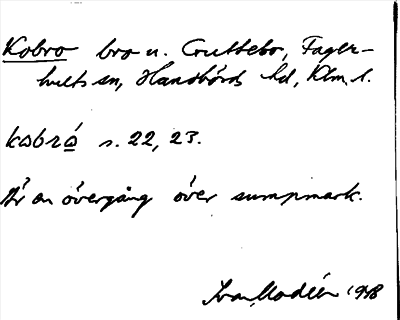 Kobro bro u. Cruttebo, Fager-
hults sn, Handbörds hd, Klm. l.
kobró s. 22, 23.
Är en övergång över sumpmark.
Ivar Modéer 1948